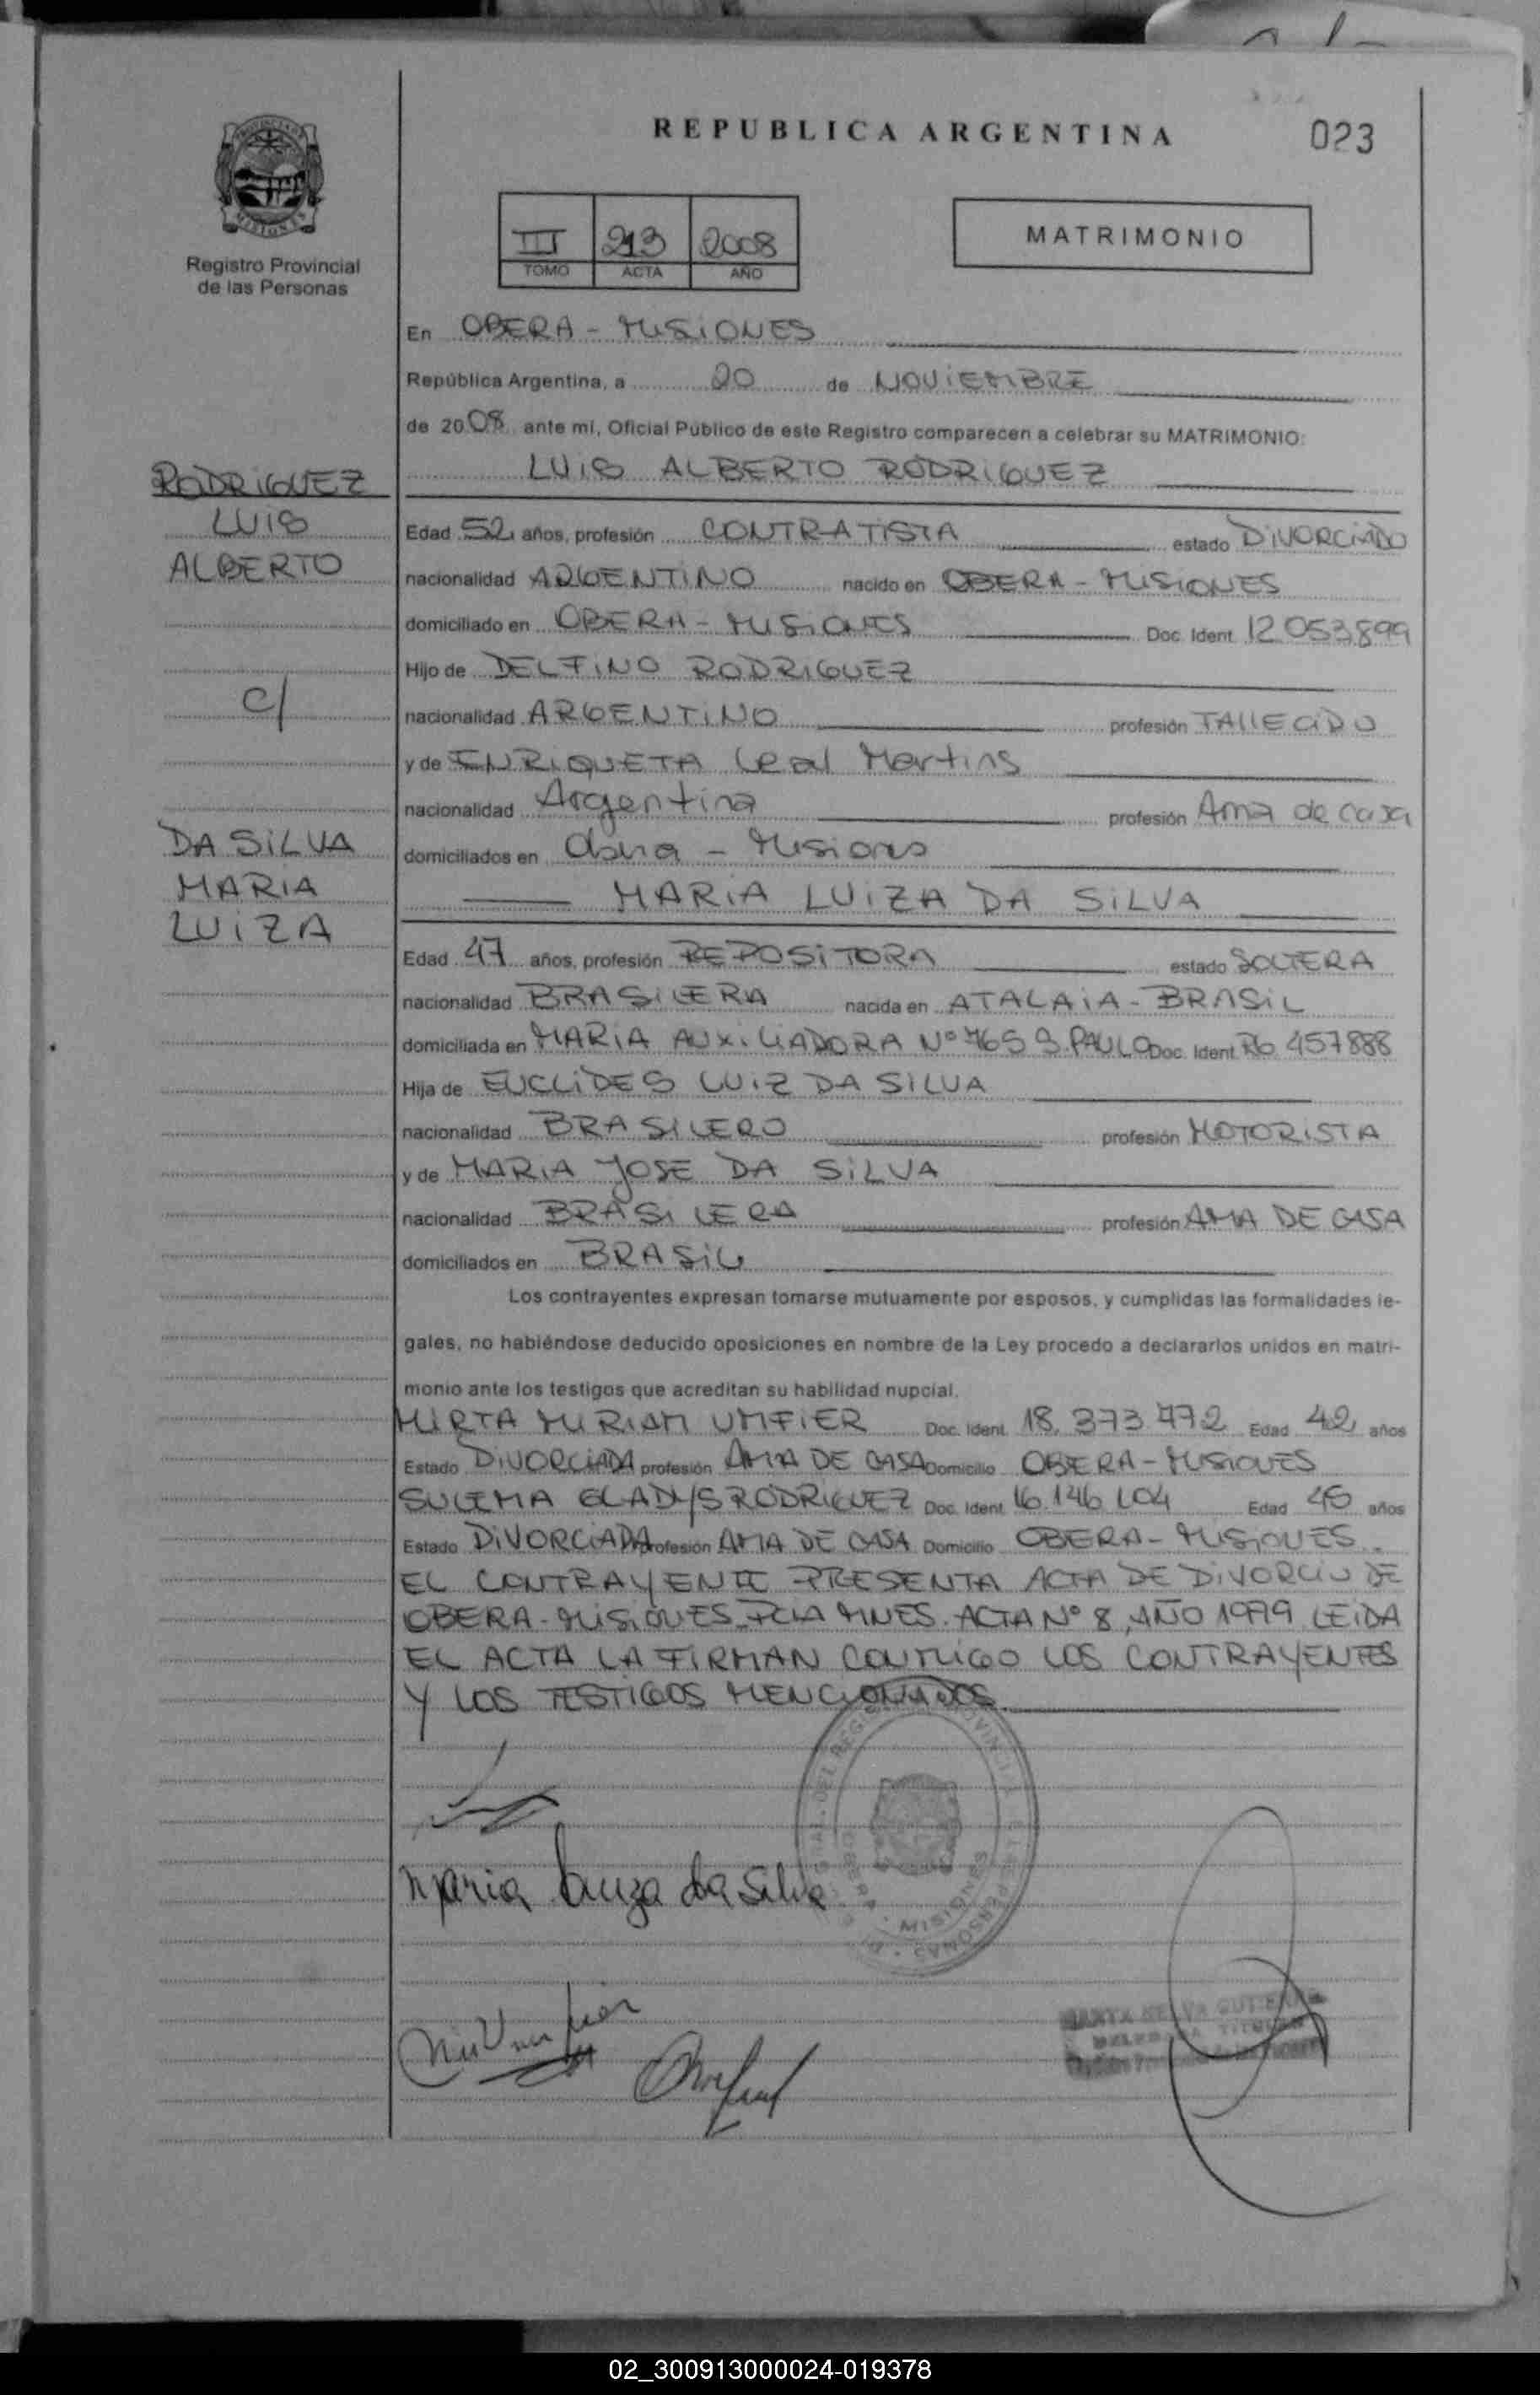 REPUBLICA ARGENTINA
023
III 213 2008
TOMO ACTA AÑO
MATRIMONIO
Registro Provincial
de las Personas
RODRIGUEZ
LUIS
ALBERTO
C/
DA SILVA
MARIA
LUIZA
En OBERA - MISIONES
República Argentina, a 20 de NOVIEMBRE
de 2008 ante mí, Oficial Público de este Registro comparecen a celebrar su MATRIMONIO:
LUIS ALBERTO RODRIGUEZ
Edad 52 años, profesión CONTRATISTA estado DIVORCIADO
nacionalidad ARGENTINO nacido en OBERA - MISIONES
domiciliado en OBERA - MISIONES Doc. Ident. 12.053.899
Hijo de DELFINO RODRIGUEZ
nacionalidad ARGENTINO profesión FALLECIDO
y de ENRIQUETA Leal Martins
nacionalidad Argentina profesión Ama de casa
domiciliados en Obera - Misiones
MARIA LUIZA DA SILVA
Edad 47 años, profesión REPOSITORA estado SOLTERA
nacionalidad BRASILERA nacida en ATALAIA - BRASIL
domiciliada en MARIA AUXILIADORA Nº 765 S. PAULO Doc. Ident. RG 457888
Hija de EUCLIDES LUIZ DA SILVA
nacionalidad BRASILERO profesión MOTORISTA
y de MARIA JOSE DA SILVA
nacionalidad BRASILERA profesión AMA DE CASA
domiciliados en BRASIL
Los contrayentes expresan tomarse mutuamente por esposos, y cumplidas las formalidades le-
gales, no habiéndose deducido oposiciones en nombre de la Ley procedo a declararlos unidos en matri-
monio ante los testigos que acreditan su habilidad nupcial.
MIRTA MIRIAM UMFIER Doc. Ident. 18.373.772 Edad 42 años
Estado DIVORCIADA profesión AMA DE CASA Domicilio OBERA - MISIONES
SULEMA GLADYS RODRIGUEZ Doc. Ident. 16.146.104 Edad 45 años
Estado DIVORCIADA profesión AMA DE CASA Domicilio OBERA - MISIONES.
EL CONTRAYENTE PRESENTA ACTA DE DIVORCIO DE
OBERA - MISIONES - PCIA MNES. ACTA Nº 8, AÑO 1979 LEIDA
EL ACTA LA FIRMAN CONMIGO LOS CONTRAYENTES
Y LOS TESTIGOS MENCIONADOS
Maria Luiza da Silva
MISIONES
02_300913000024-019378